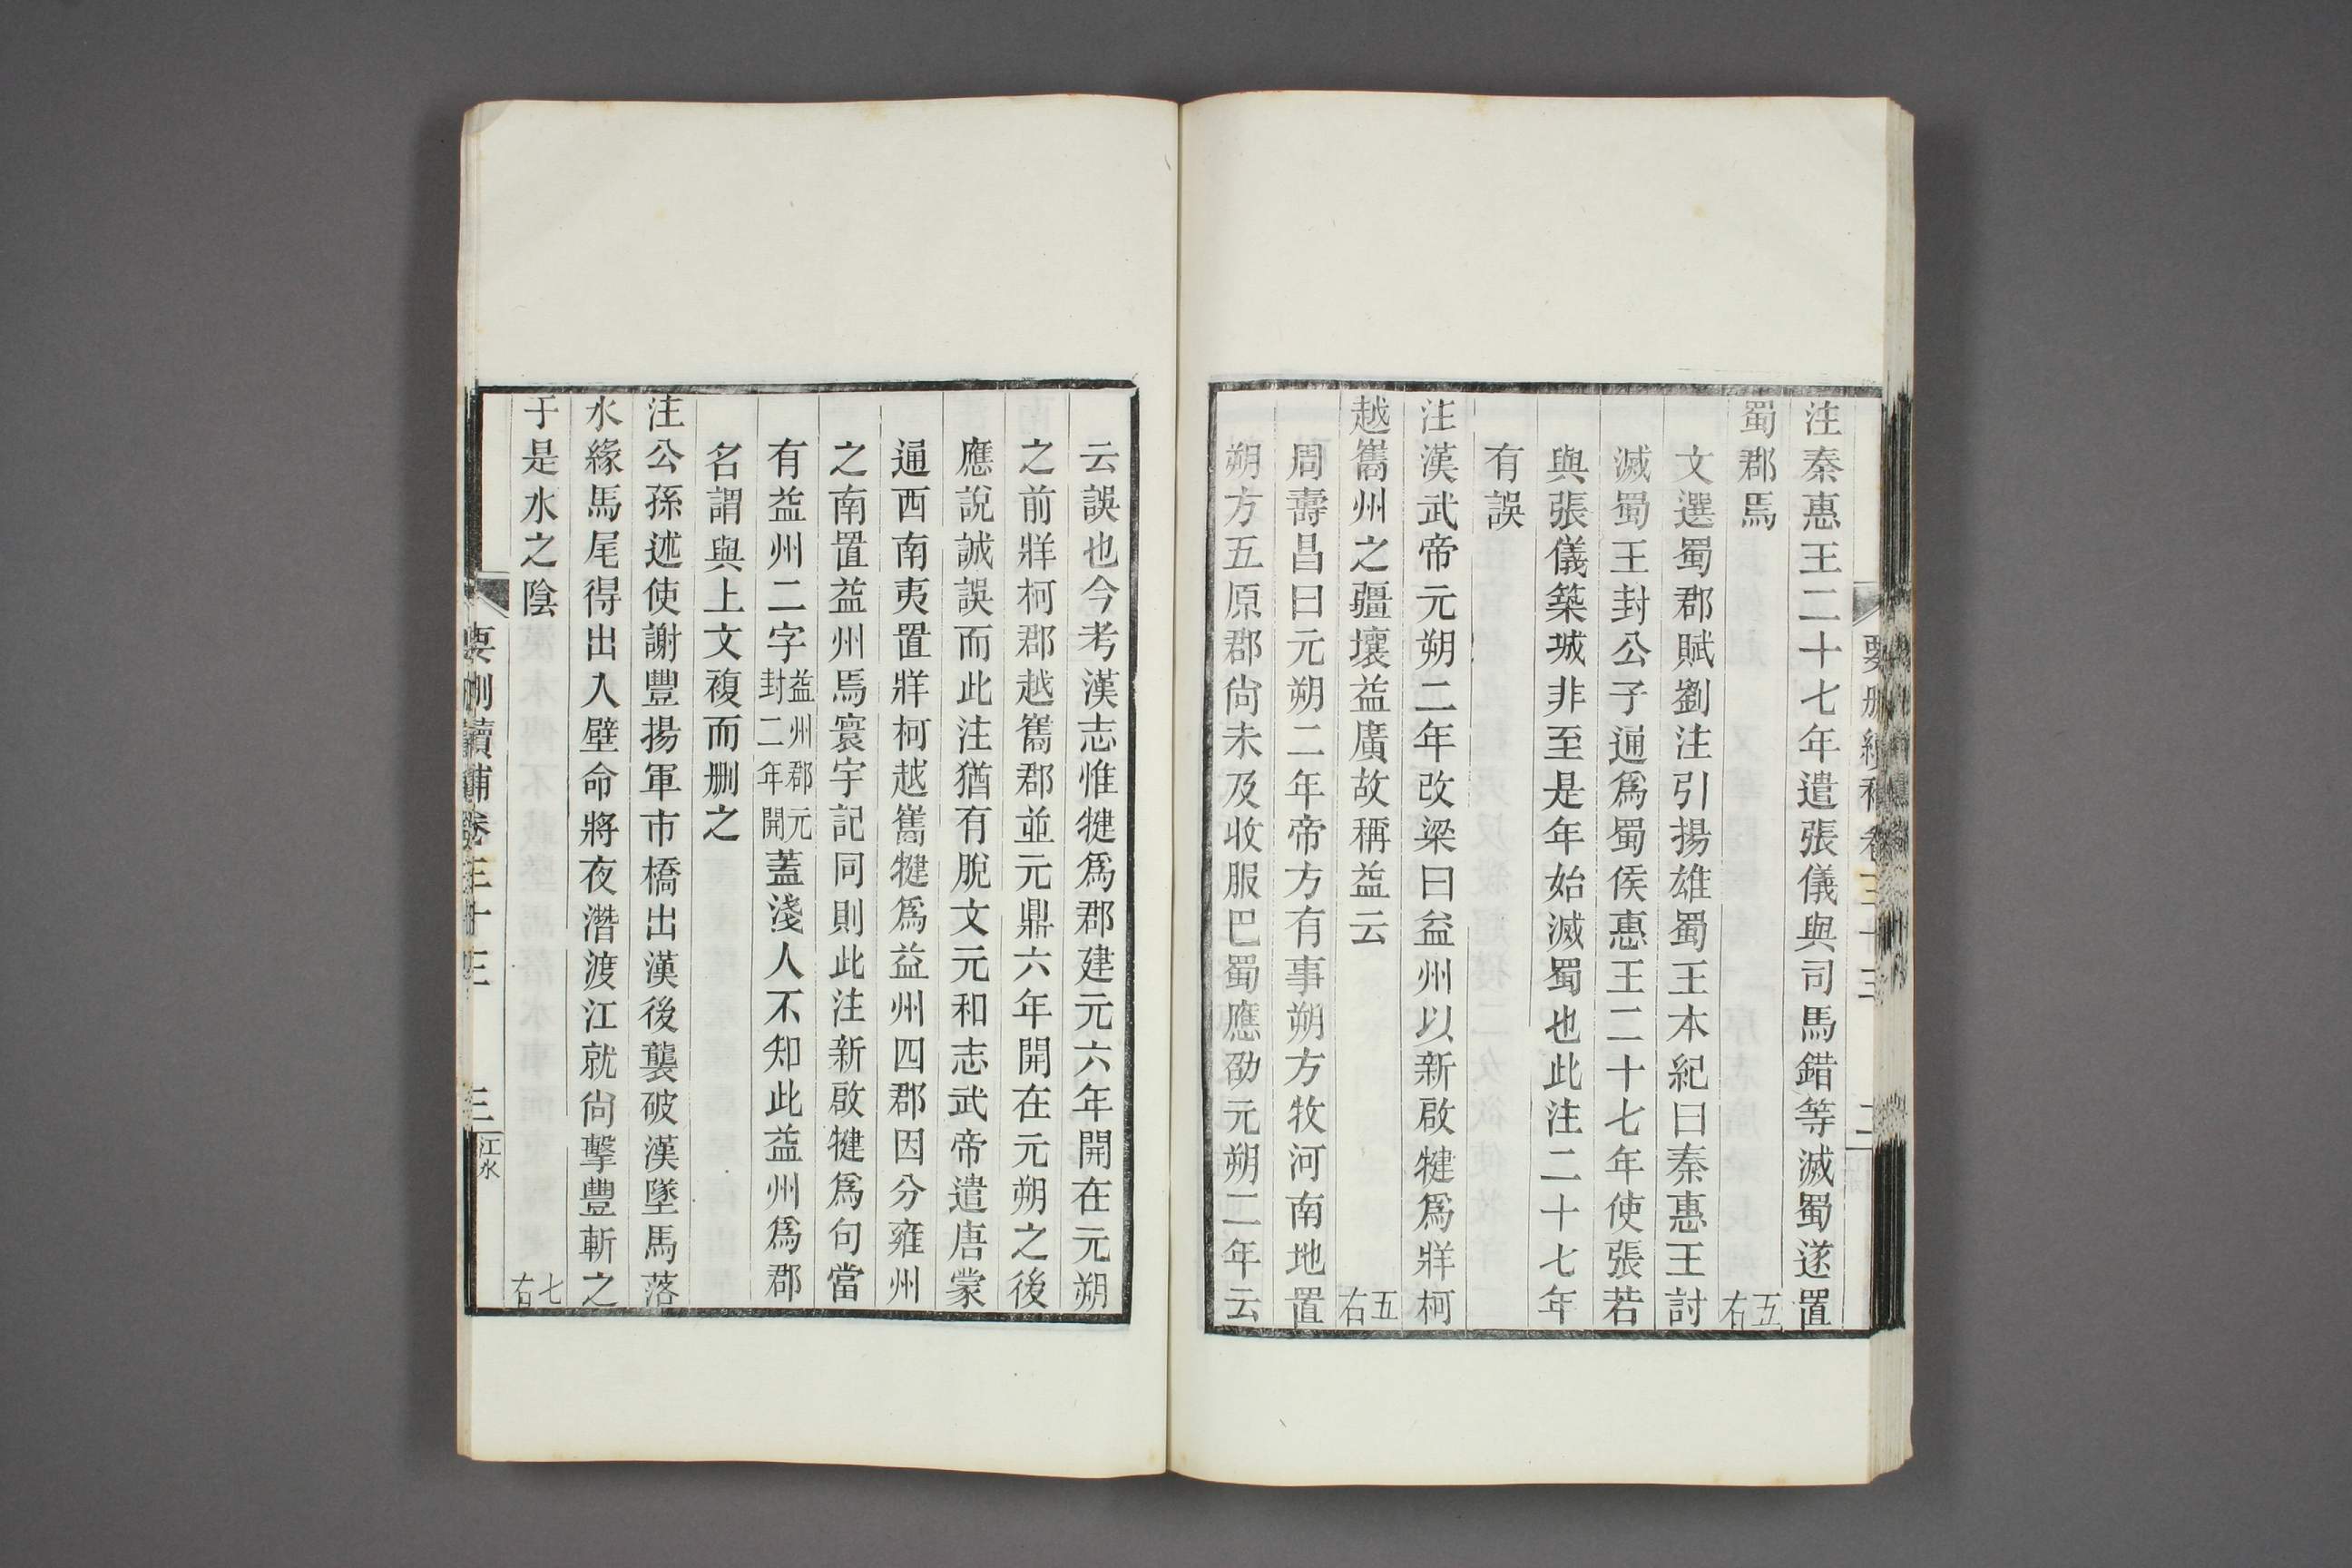 注秦惠王二十七年遣張儀與司馬錯等滅蜀遂置
蜀郡焉 五右
文選蜀郡賦劉注引揚雄蜀王本紀曰秦惠王討
滅蜀王封公子通爲蜀侯惠王二十七年使張若
與張儀築城非至是年始滅蜀也此注二十七年
有誤
注漢武帝元朔二年改梁曰益州以新啟犍爲牂柯
越嶲州之疆壤益廣故稱益云 五右
周壽昌曰元朔二年帝方有事朔方牧河南地置
朔方五原郡尙未及收服巴蜀應劭元朔二年云
云誤也今考漢志惟犍爲郡建元六年開在元朔
之前牂柯郡越嶲郡並元鼎六年開在元朔之後
應說誠誤而此注猶有脫文元和志武帝遣唐蒙
通西南夷置牂柯越嶲犍爲益州四郡因分雍州
之南置益州焉寰宇記同則此注新啟犍爲句當
有益州二字益州郡元封二年開蓋淺人不知此益州爲郡
名謂與上文複而刪之
注公孫述使謝豐揚軍市橋出漢後襲破漢墜馬落
水緣馬尾得出入壁命將夜潛渡江就尙擊豐斬之
于是水之陰 七右
要刪續補卷三十三 三 江水